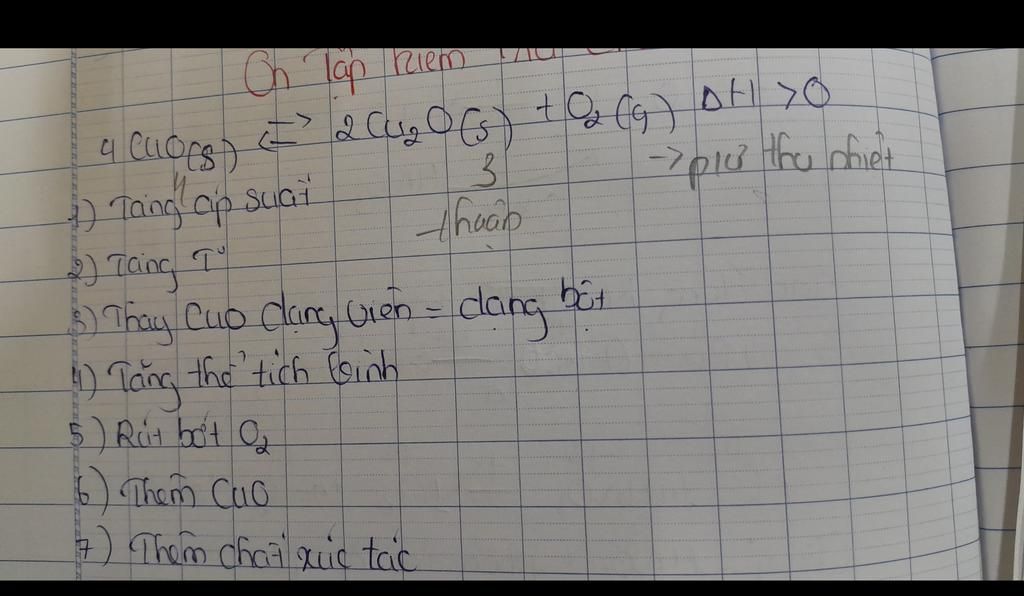 Ôn Tập kiểm
4 CuO(s) ⇌ 2Cu₂O(s) + O₂(g) ΔH >0
4 3 → pứ thu nhiệt
1) Tăng áp suất
thuận
2) Tăng T°
3) Thay CuO dạng viên = dạng bột
4) Tăng thể tích bình
5) Rút bớt O₂
6) Thêm CuO
7) Thêm chất xúc tác